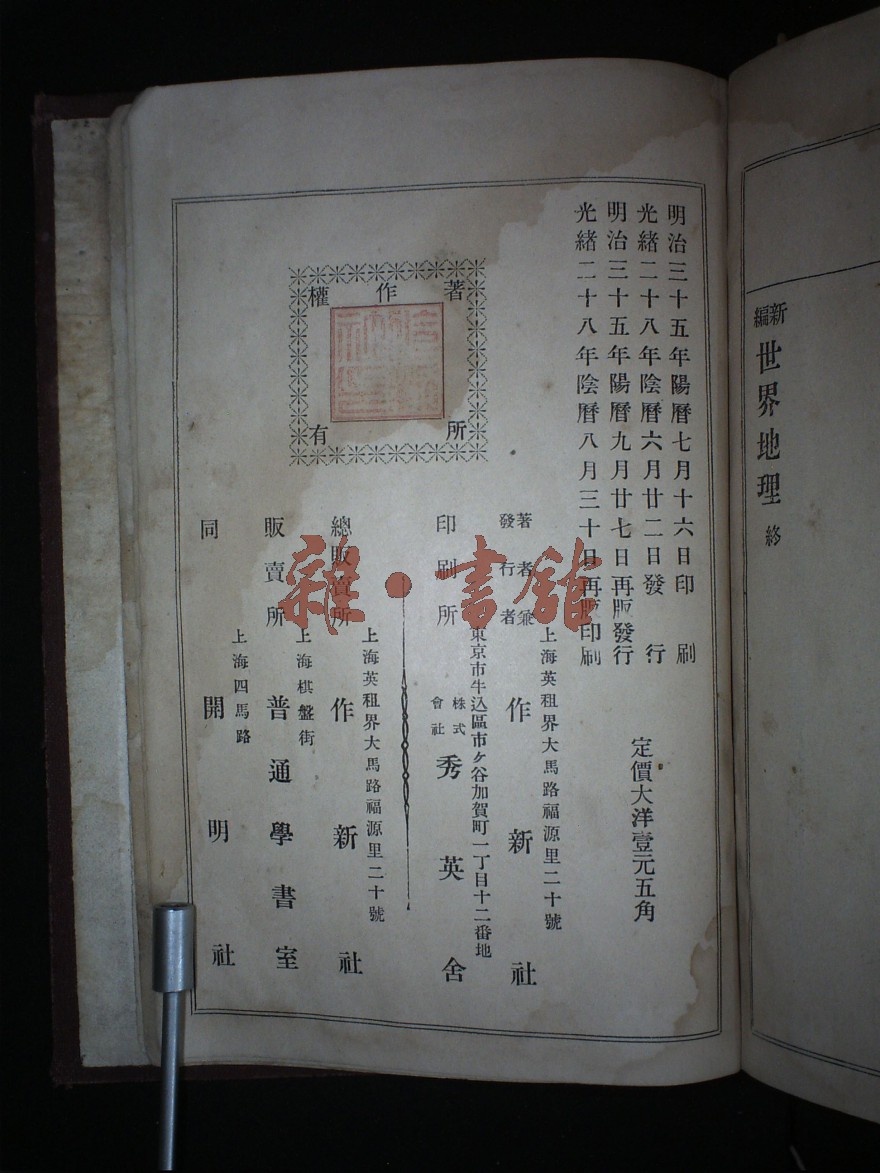 新編世界地理 終
明治三十五年陽曆七月十六日印刷
光緒二十八年陰曆六月廿二日發行
明治三十五年陽曆九月廿七日再版發行
光緒二十八年陰曆八月三十日再版印刷
定價大洋壹元五角
著作權所有
上海英租界大馬路福源里二十號
著者兼發行者 作新社
東京市牛込區市ケ谷加賀町一丁目十二番地
印刷所 株式會社 秀英舍
上海英租界大馬路福源里二十號
總販賣所 作新社
上海棋盤街
販賣所 普通學書室
上海四馬路
同 開明社
雜·書館